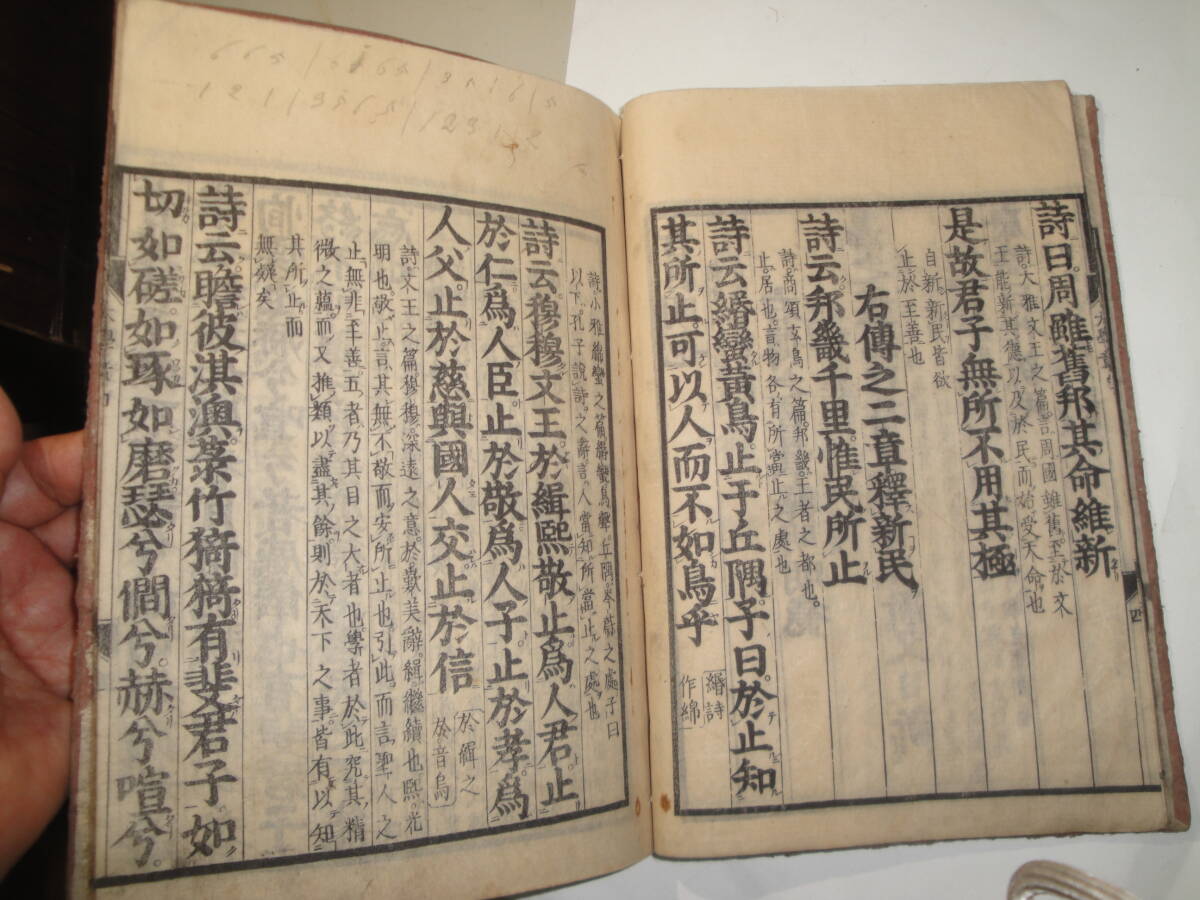 詩曰周雖舊邦其命維新
詩大雅文王之篇言周國雖舊至於文
王能新其德以及於民而始受天命也
是故君子無所不用其極
自新新民皆欲
止於至善也
右傳之二章釋新民
詩云邦畿千里惟民所止
詩商頌玄鳥之篇邦畿王者之都也
止居也言物各有所當止之處也
詩云緡蠻黃鳥止于丘隅子曰於止知
其所止可以人而不如鳥乎
緡詩
作綿
四
詩小雅緜蠻之篇緡蠻鳥聲丘隅岑蔚之處子曰
以下孔子說詩之辭言人當知所當止之處也
詩云穆穆文王於緝熙敬止為人君止
於仁為人臣止於敬為人子止於孝為
人父止於慈與國人交止於信
於緝之
於音烏
詩文王之篇穆穆深遠之意於歎美辭緝繼續也熙光
明也敬止言其無不敬而安所止也引此而言聖人之
止無非至善五者乃其目之大者也學者於此究其精
微之蘊而又推類以盡其餘則於天下之事皆有以知
其所止而
無疑矣
詩云瞻彼淇澳菉竹猗猗有斐君子如
切如磋如琢如磨瑟兮僩兮赫兮喧兮